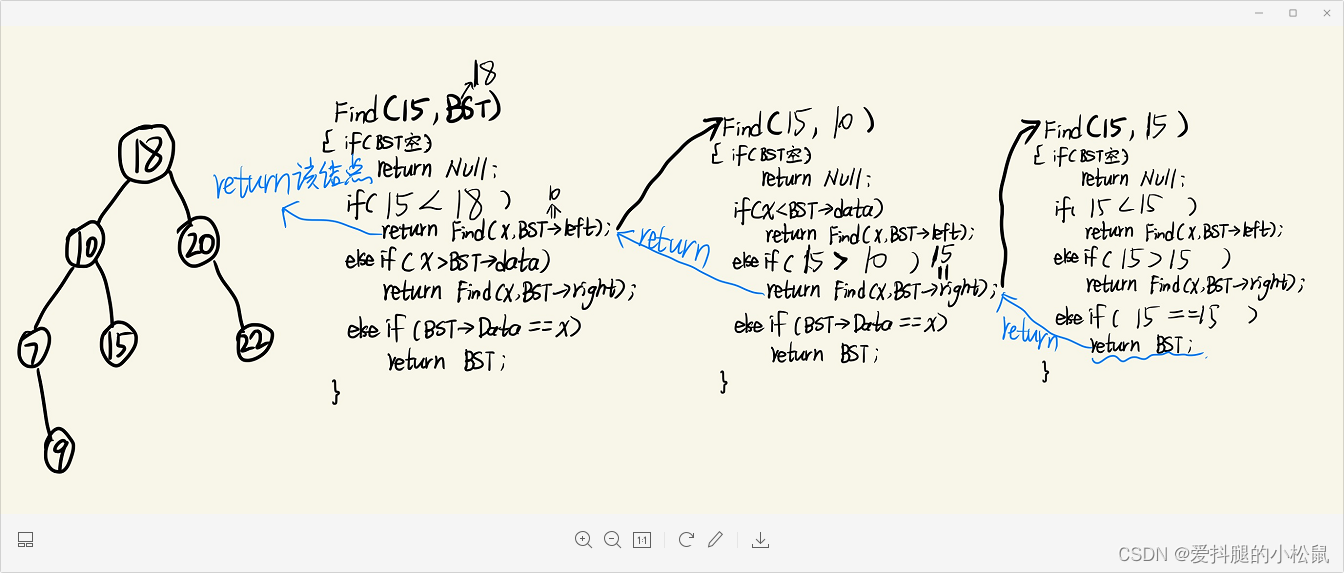 18
10
20
7
15
22
9
18
Find(15, BST)
{ if(BST空)
return Null;
return该结点
if( 15 < 18 )
10
return Find(X,BST→left);
else if( X>BST→data)
return Find(X,BST→right);
else if (BST→Data == X)
return BST;
}
Find(15, 10 )
{ if(BST空)
return Null;
if(X<BST→data)
return Find(X,BST→left);
return
else if( 15 > 10 )
15
return Find(X,BST→right);
else if (BST→Data == X)
return BST;
}
Find(15, 15 )
{ if(BST空)
return Null;
if( 15 < 15 )
return Find(X,BST→left);
else if( 15 > 15 )
return Find(X,BST→right);
else if( 15 ==15 )
return
return BST;
}
1:1
CSDN @爱抖腿的小松鼠